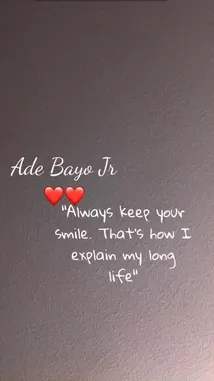 Ade Bayo Jr
❤️❤️
"Always keep your
smile. That's how I
explain my long
life"